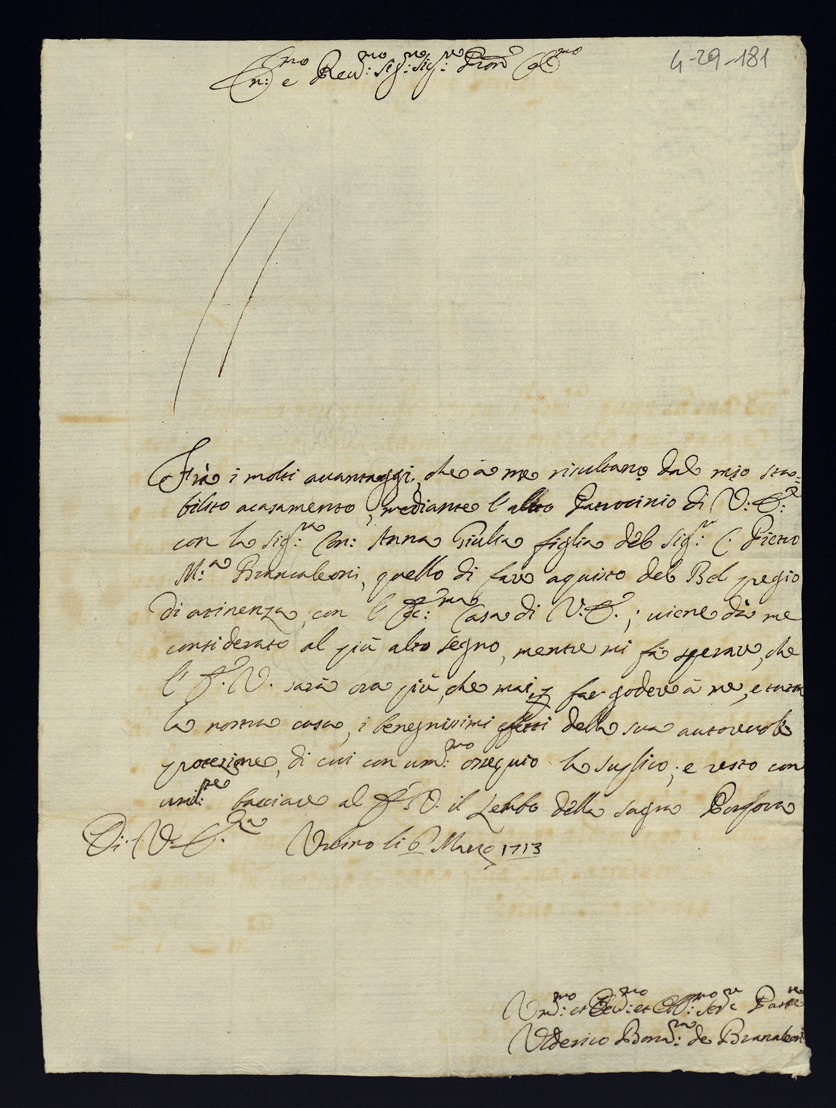 4-29-181
Em:mo e Rev:mo Sig:re Sig:re Pron Col:mo
Frà i molti auantaggi, che à me risultano dal mio sta=
bilito acasamento, mediante l'alto Patrocinio di V: E:
con la Sig:ra Con: Anna Giulia figlia del Sig:r C: Pietro
M:a Brancaleoni, quello di fare aquisto del Bel pregio
di atinenza, con l'Ecc:ma Casa di V: E:, uiene dà me
considerato al più alto segno, mentre mi fà sperare, che
l'E: V: sarà ora più, che mai, fae godere à me, e tutta
la nostra casa, i benegnissimi effetti della sua autoreuole
protezione, di cui con um:mo ossequio la suplico; e resto con
baciare al E: V: il Lembo della sagra Porpora
Di V: E:za Vrbino li 6 Marzo 1713
Vm:mo et Deu:mo et Obl:mo Ser:re
Vlderico Bona:ra de Brancaleoni